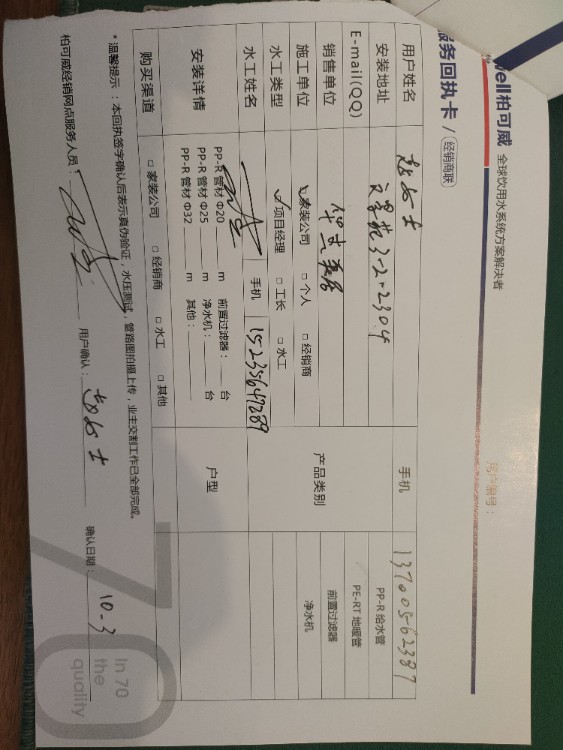 ell柏可威 全球饮用水系统方案解决者
服务回执卡 / 经销商联
用户编号：
用户姓名 赵女士 手机 13700562387
安装地址 3-2-2304
E-mail(QQ)
销售单位 华立美居 产品类别 PP-R 给水管
施工单位 家装公司 □ 个人 □ 经销商 PE-RT 地暖管
水工类型 项目经理 □ 工长 □ 水工 前置过滤器
水工姓名 手机 15235647289 净水机
安装详情 PP-R 管材 Φ20 m 前置过滤器： 台 户型
PP-R 管材 Φ25 m 净水机： 台
PP-R 管材 Φ32 m 其他：
购买渠道 □ 家装公司 □ 经销商 □ 水工 □ 其他
*温馨提示：本回执签字确认后表示真伪验证，水压测试，管路图拍摄上传，业主交割工作已全部完成。
柏可威经销网点服务人员： 用户确认：赵女士 确认日期：10-3
70
In 70
the
quality